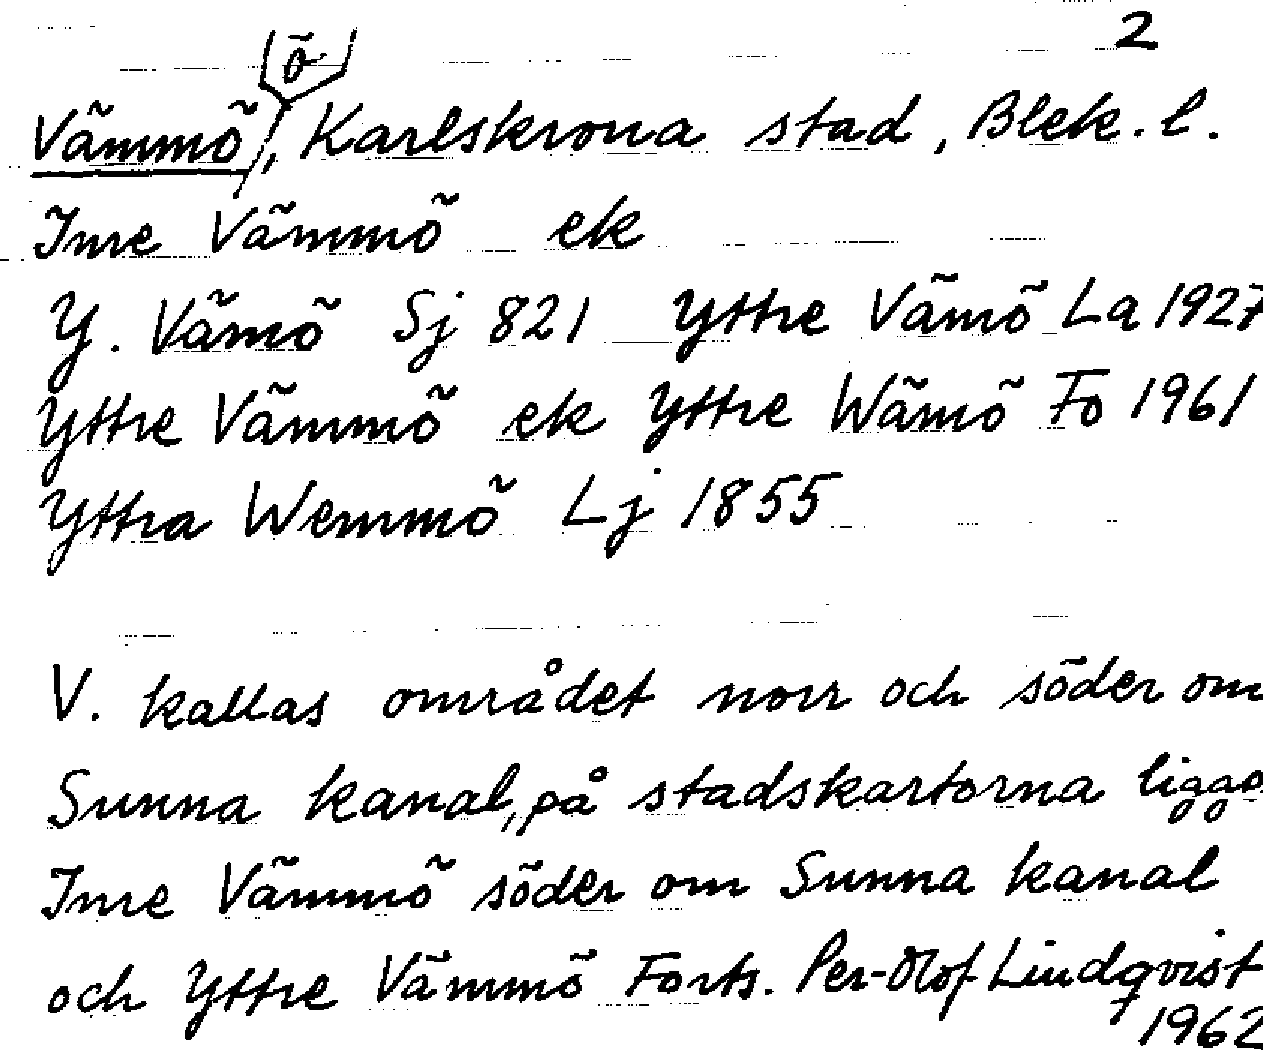 2
ö
Vämmö, Karlskrona stad, Blek. l.
Inre Vämmö ek
Y. Vämö Sj 821 Yttre Vämö La 1927
Yttre Vämmö ek Yttre Wämö Fo 1961
Yttra Wemmö Lj 1855
V. kallas området norr och söder om
Sunna kanal, på stadskartorna ligger
Inre Vämmö söder om Sunna kanal
och Yttre Vämmö Forts. Per-Olof Lindqvist
1962